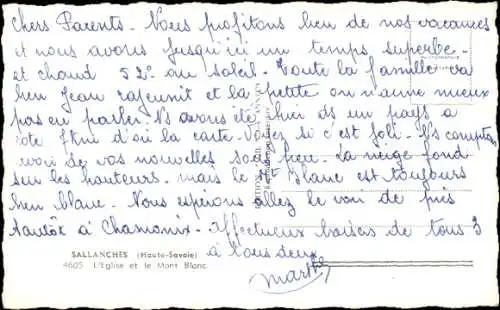 chers Parents. Nous profitons bien de nos vacances
et nous avons jusqu'ici un temps superbe.
et chaud 52° au soleil. Toute la famille va
bien Jean rajeunit et la petite on n'aime mieux
pas en parler Ns avons été hier ds un pays a
côté d'où la carte. Voyez si c'est joli. Ns comptons
avoir de vos nouvelles sous peu. La neige fond
sur les hauteurs. mais le Mt Blanc est toujours
bien blanc. Nous espérons allez le voir de près
tantôt à Chamonix. Affectueux baisers de tous 3
à tous deux
Marthe
SALLANCHES (Haute-Savoie)
4605 L'Eglise et le Mont Blanc